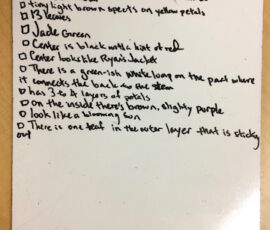 □ tiny light brown spects on yellow petals
□ 13 leaves
□ Jade Green
□ Center is black with a hint of red
□ Center looks like Ryan's Jacket
□ There is a green-ish white on the part where
it connects the back to the stem
□ has 3 to 4 layers of petals
□ on the inside there's brown, slighty purple
□ look like a sun
□ There is one leaf in the outer layer that is sticky
out